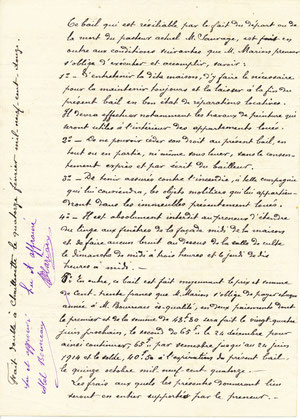 Ce bail qui est résiliable par le fait du départ ou de
la mort du pasteur actuel M. Sauvage, est fait en
outre aux conditions suivantes que M. Marion preneur
s'oblige d'exécuter et accomplir, savoir :
1º — D'entretenir la dite maison, d'y faire le nécessaire
pour la maintenir toujours et la laisser à la fin du
présent bail en bon état de réparations locatives.
Il devra effectuer notamment les travaux de peinture qui
seront utiles à l'intérieur des appartements loués.
2º — De ne pouvoir céder son droit au présent bail, en
tout ou en partie, ni même sous louer, sans le consen-
tement exprès et par écrit du bailleur.
3º — De tenir assurés contre l'incendie, à telle compagnie
qui lui conviendra, les objets mobiliers qui lui appartien-
dront dans les immeubles présentement loués.
4º — Il est absolument interdit au preneur d'étendre
du linge aux fenêtres de la façade midi de la maison
et de faire aucun bruit au dessus de la salle de culte
le dimanche de midi à trois heures et le jeudi de dix
heures à midi.
En outre, le bail est fait moyennant le prix et somme
de cent trente francs que M. Marion s'oblige de payer chaque
année à M. Bonnemer ès qualité, en deux paiements dont
le premier et de la somme de 43.50 sera fait le vingt quatre
juin prochain, le second de 65 f. le 24 décembre pour
ainsi continuer, 65 f. par semestre jusqu'au 24 juin
1914 et le solde, 40.50 à l'expiration du présent bail
le quinze octobre mil neuf cent quatorze.
Les frais que les présentes donneront lieu
seront en entier supportés par le preneur.
Fait double à le quatorze février mil neuf cent douze.
Lu et approuvé
Lu et approuvé